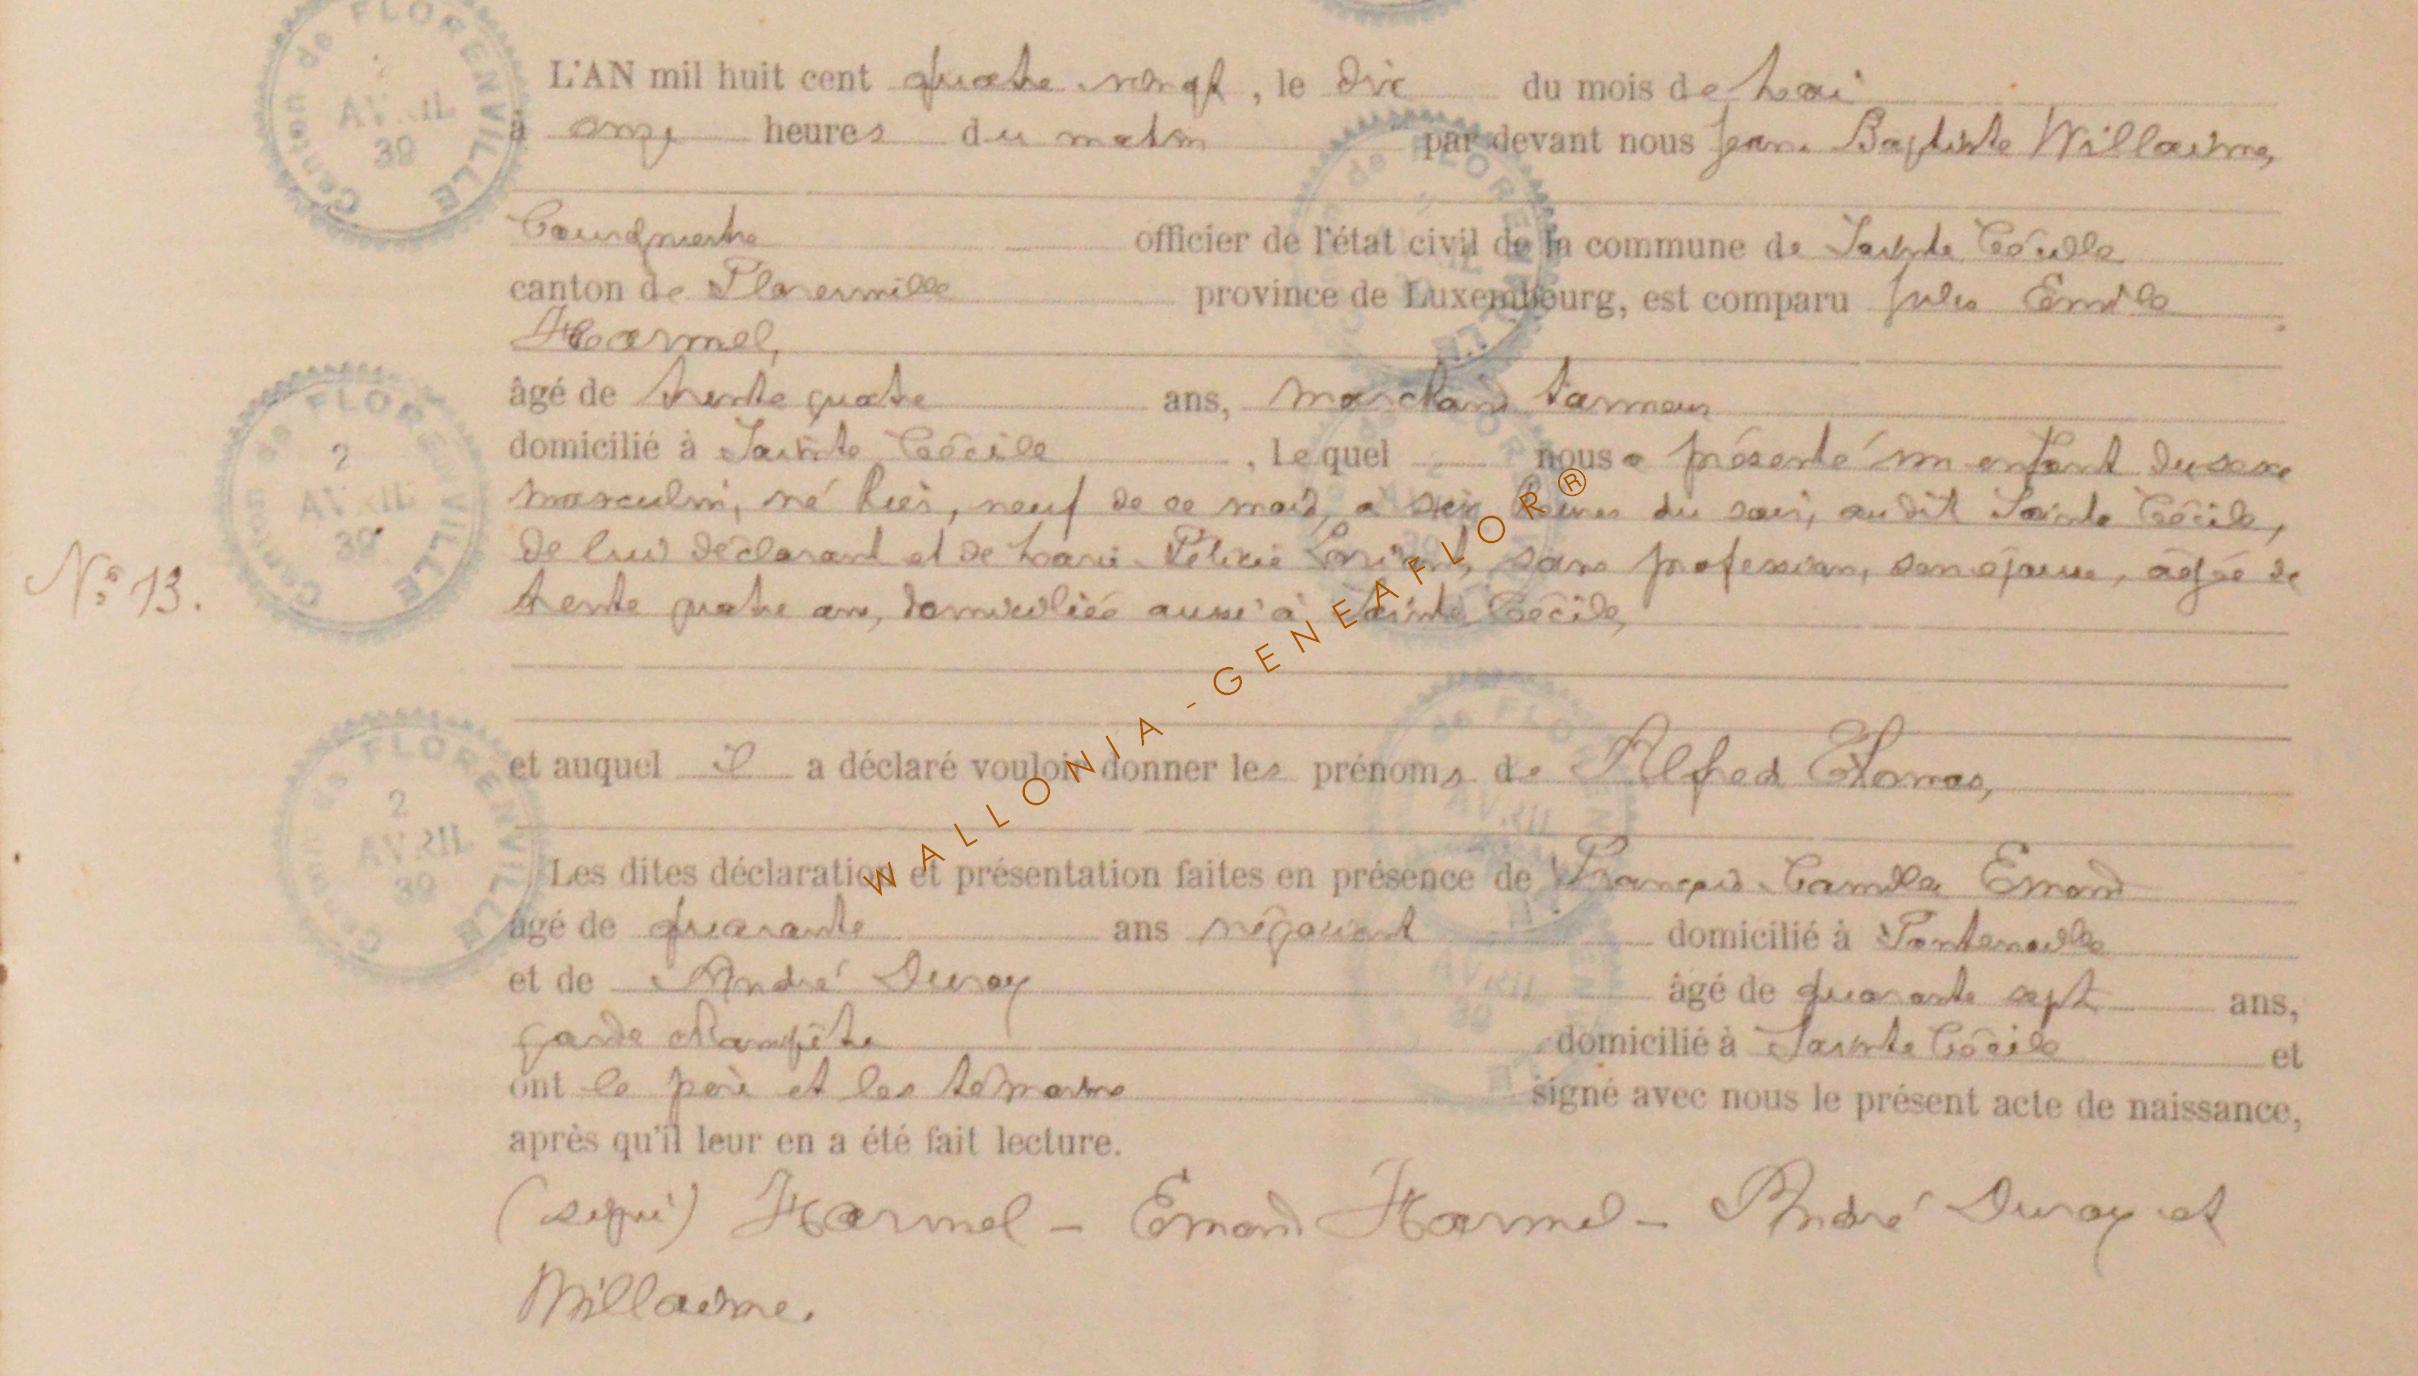 L'AN mil huit cent quatre vingt, le dix du mois de Mai
à onze heures du matin par devant nous Jean Baptiste Willaime,
Bourgmestre officier de l'état civil de la commune de Sainte Cécile
canton de Florenville province de Luxembourg, est comparu Jules Emile
Harmel,
âgé de trente quatre ans, marchand tanneur
domicilié à Sainte Cécile, lequel nous a présenté un enfant du sexe
masculin, né hier, neuf de ce mois, à six heures du soir, au dit Sainte Cécile,
N° 13.
de lui déclarant et de Marie Félicie, sans profession, son épouse, âgée de
trente quatre ans, domiciliée aussi à Sainte Cécile,
et auquel il a déclaré vouloir donner les prénoms de Alfred Thomas,
Les dites déclaration et présentation faites en présence de François Camille Emond
âgé de quarante ans négociant domicilié à Fontenoille
et de André Duroy âgé de quarante sept ans,
garde champêtre domicilié à Sainte Cécile et
ont le père et les témoins signé avec nous le présent acte de naissance,
après qu'il leur en a été fait lecture.
(signé) Harmel - Emond Harmel - André Duroy et
Willaime.
Canton de FLORENVILLE
AVRIL
39
Canton de FLORENVILLE
2
AVRIL
39
Canton de FLORENVILLE
2
AVRIL
39
WALLONIA-GENEAFLOR®